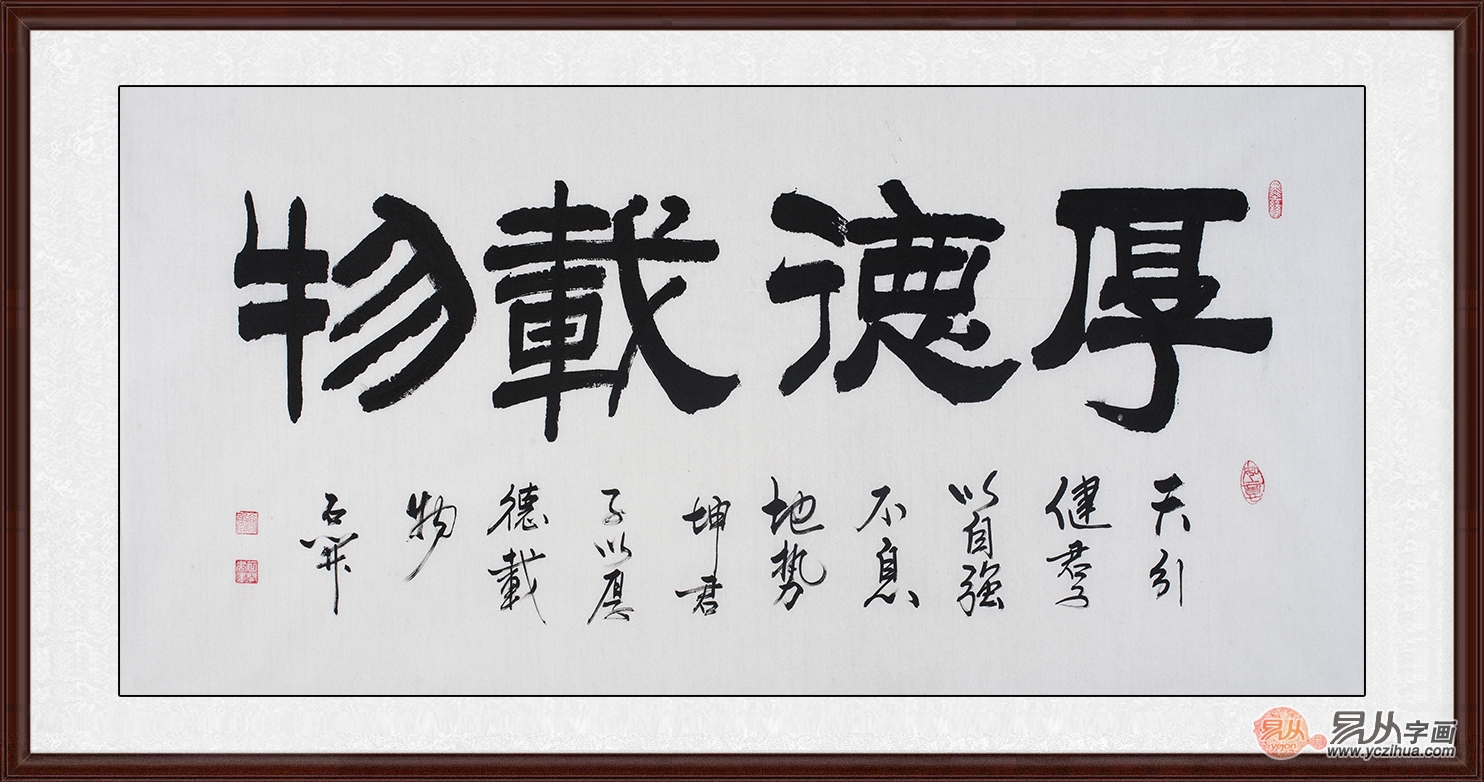 厚德載物
天行
健君子
以自強
不息
地势
坤君
子以厚
德載
物
石開
易从
易从字画
www.yczihua.com